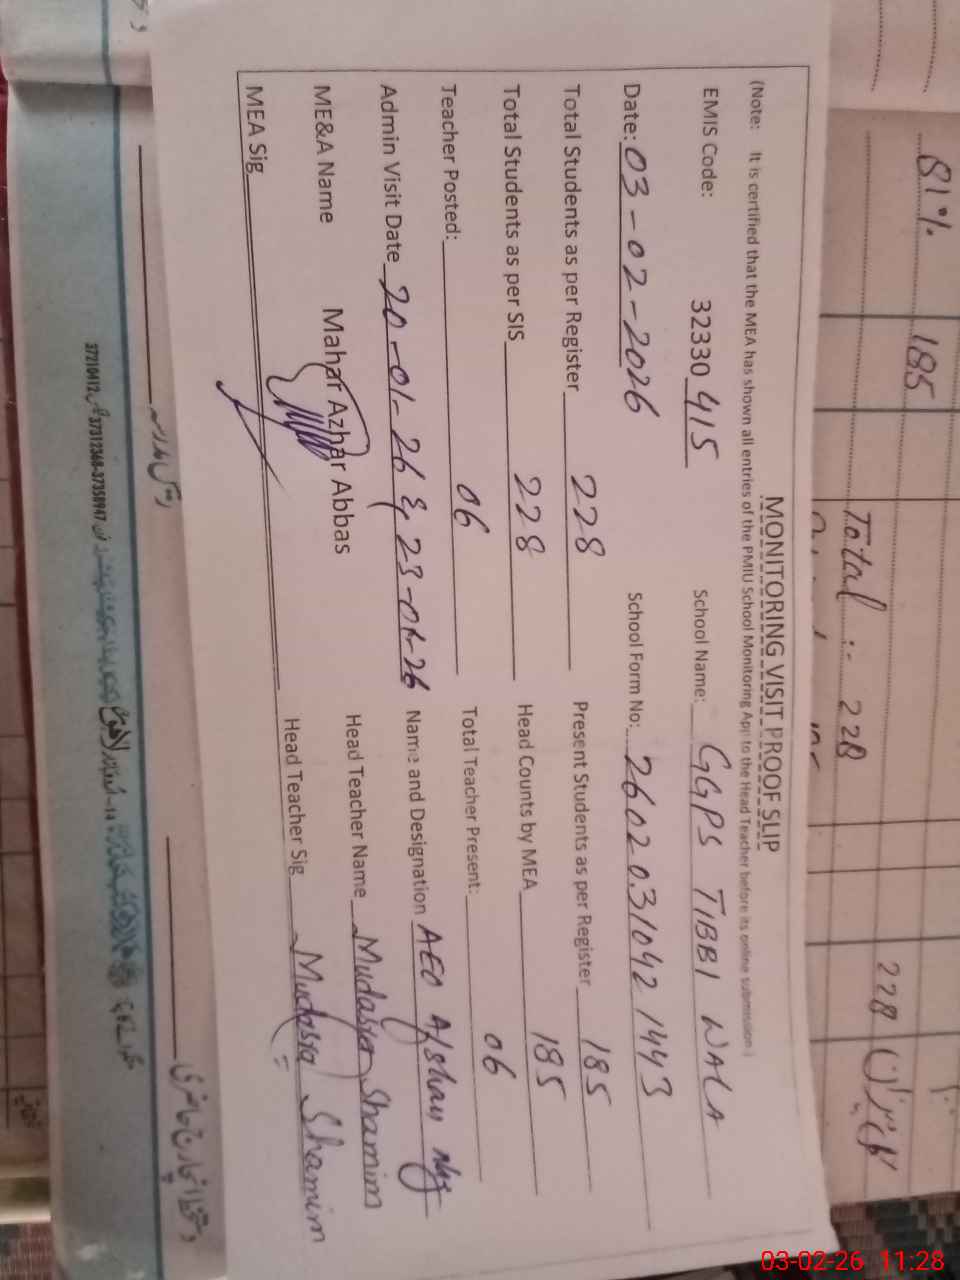 81% 185
Total :- 228
228
MONITORING VISIT PROOF SLIP
(Note: It is certified that the MEA has shown all entries of the PMIU School Monitoring App to the Head Teacher before its online submission)
EMIS Code: 32330 415 School Name: GGPS TIBBI WALA
Date: 03-02-2026 School Form No: 26020310421443
Total Students as per Register 228 Present Students as per Register 185
Total Students as per SIS 228 Head Counts by MEA 185
Teacher Posted: 06 Total Teacher Present: 06
Admin Visit Date 20-01-26 & 23-01-26 Name and Designation AEO Afshan
ME&A Name Mahar Azhar Abbas Head Teacher Name Mudasra Shamim
MEA Sig Head Teacher Sig Mudasra Shamim
37210412 37312368-37358947
03-02-26 11:28